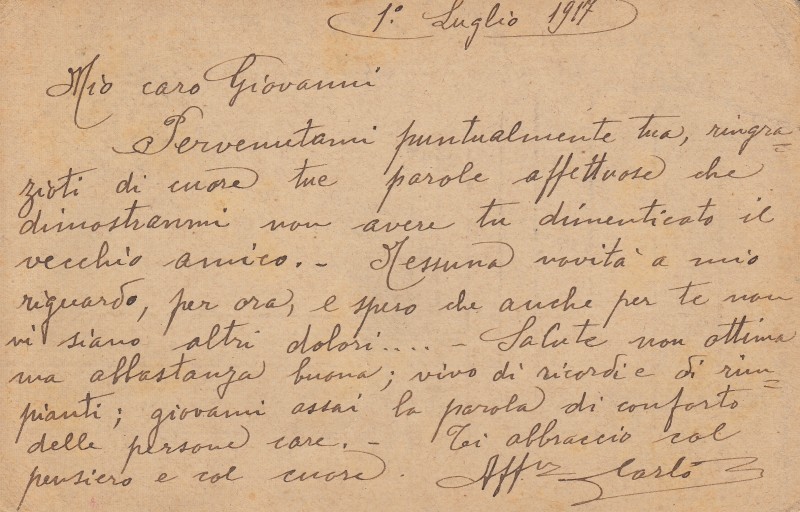 1º Luglio 1917
Mio caro Giovanni
Pervenutami puntualmente tua, ringra=
zioti di cuore tue parole affettuose che
dimostranmi non avere tu dimenticato il
vecchio amico. - Nessuna novità a mio
riguardo, per ora, e spero che anche per te non
vi siano altri dolori.... - Salute non ottima
ma abbastanza buona; vivo di ricordi e di rim=
pianti; giovanmi assai la parola di conforto
delle persone care. - Ti abbraccio col
pensiero e col cuore. Aff Carlo